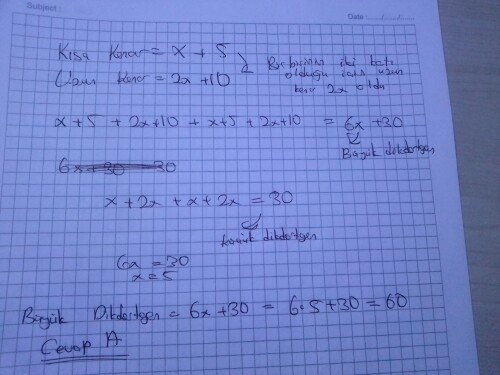 Subject:
Date:
Kısa Kenar = x + 5
Uzun kenar = 2x + 10
Birbirinin iki katı
olduğu için uzun
kenar 2x oldu
x + 5 + 2x + 10 + x + 5 + 2x + 10 = 6x + 30
Büyük dikdörtgen
6x + 30 30
x + 2x + x + 2x = 30
küçük dikdörtgen
6x = 30
x = 5
Büyük Dikdörtgen = 6x + 30 = 6.5 + 30 = 60
Cevap A